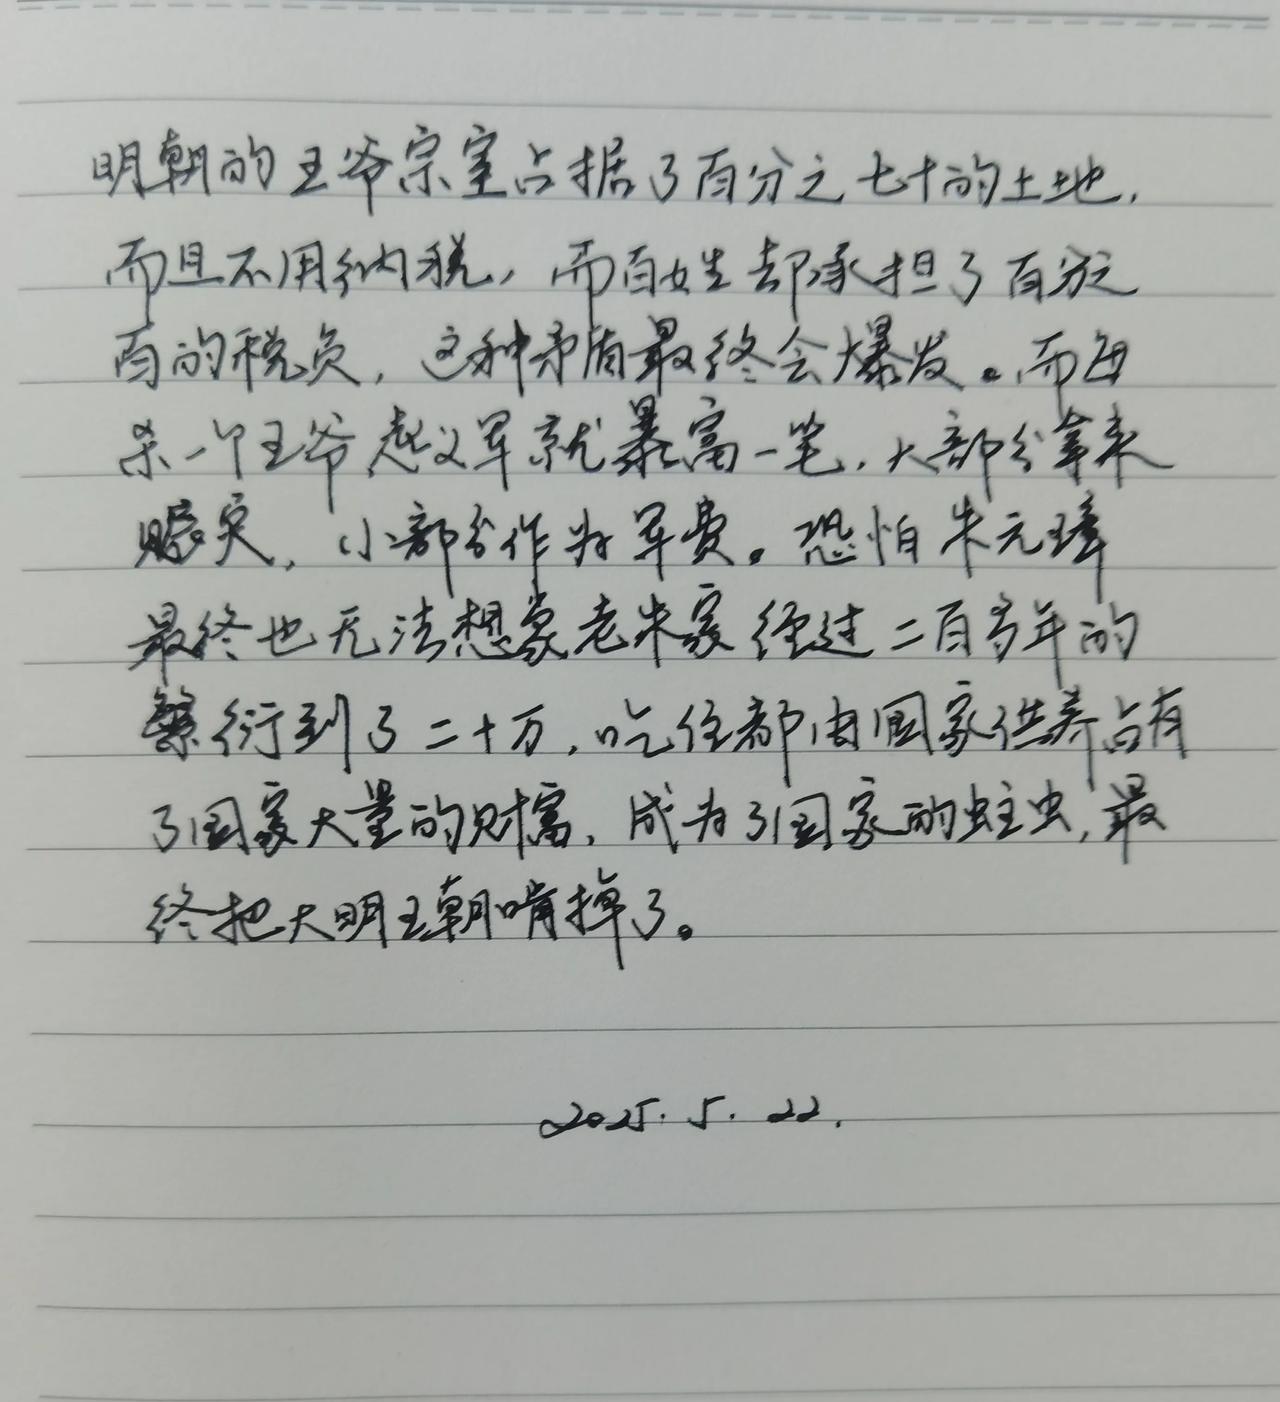 明朝的王爷宗室占据了百分之七十的土地,
而且不用纳税,而百姓却承担了百分之
百的税负,这种矛盾最终会爆发。而每
杀一个王爷起义军就暴富一笔,大部分拿来
赈灾,小部分作为军费。恐怕朱元璋
最终也无法想象老朱家经过二百多年的
繁衍到了二十万,吃住都由国家供养占有
了国家大量的财富,成为了国家的蛀虫,最
终把大明王朝啃掉了。
2025.5.22.